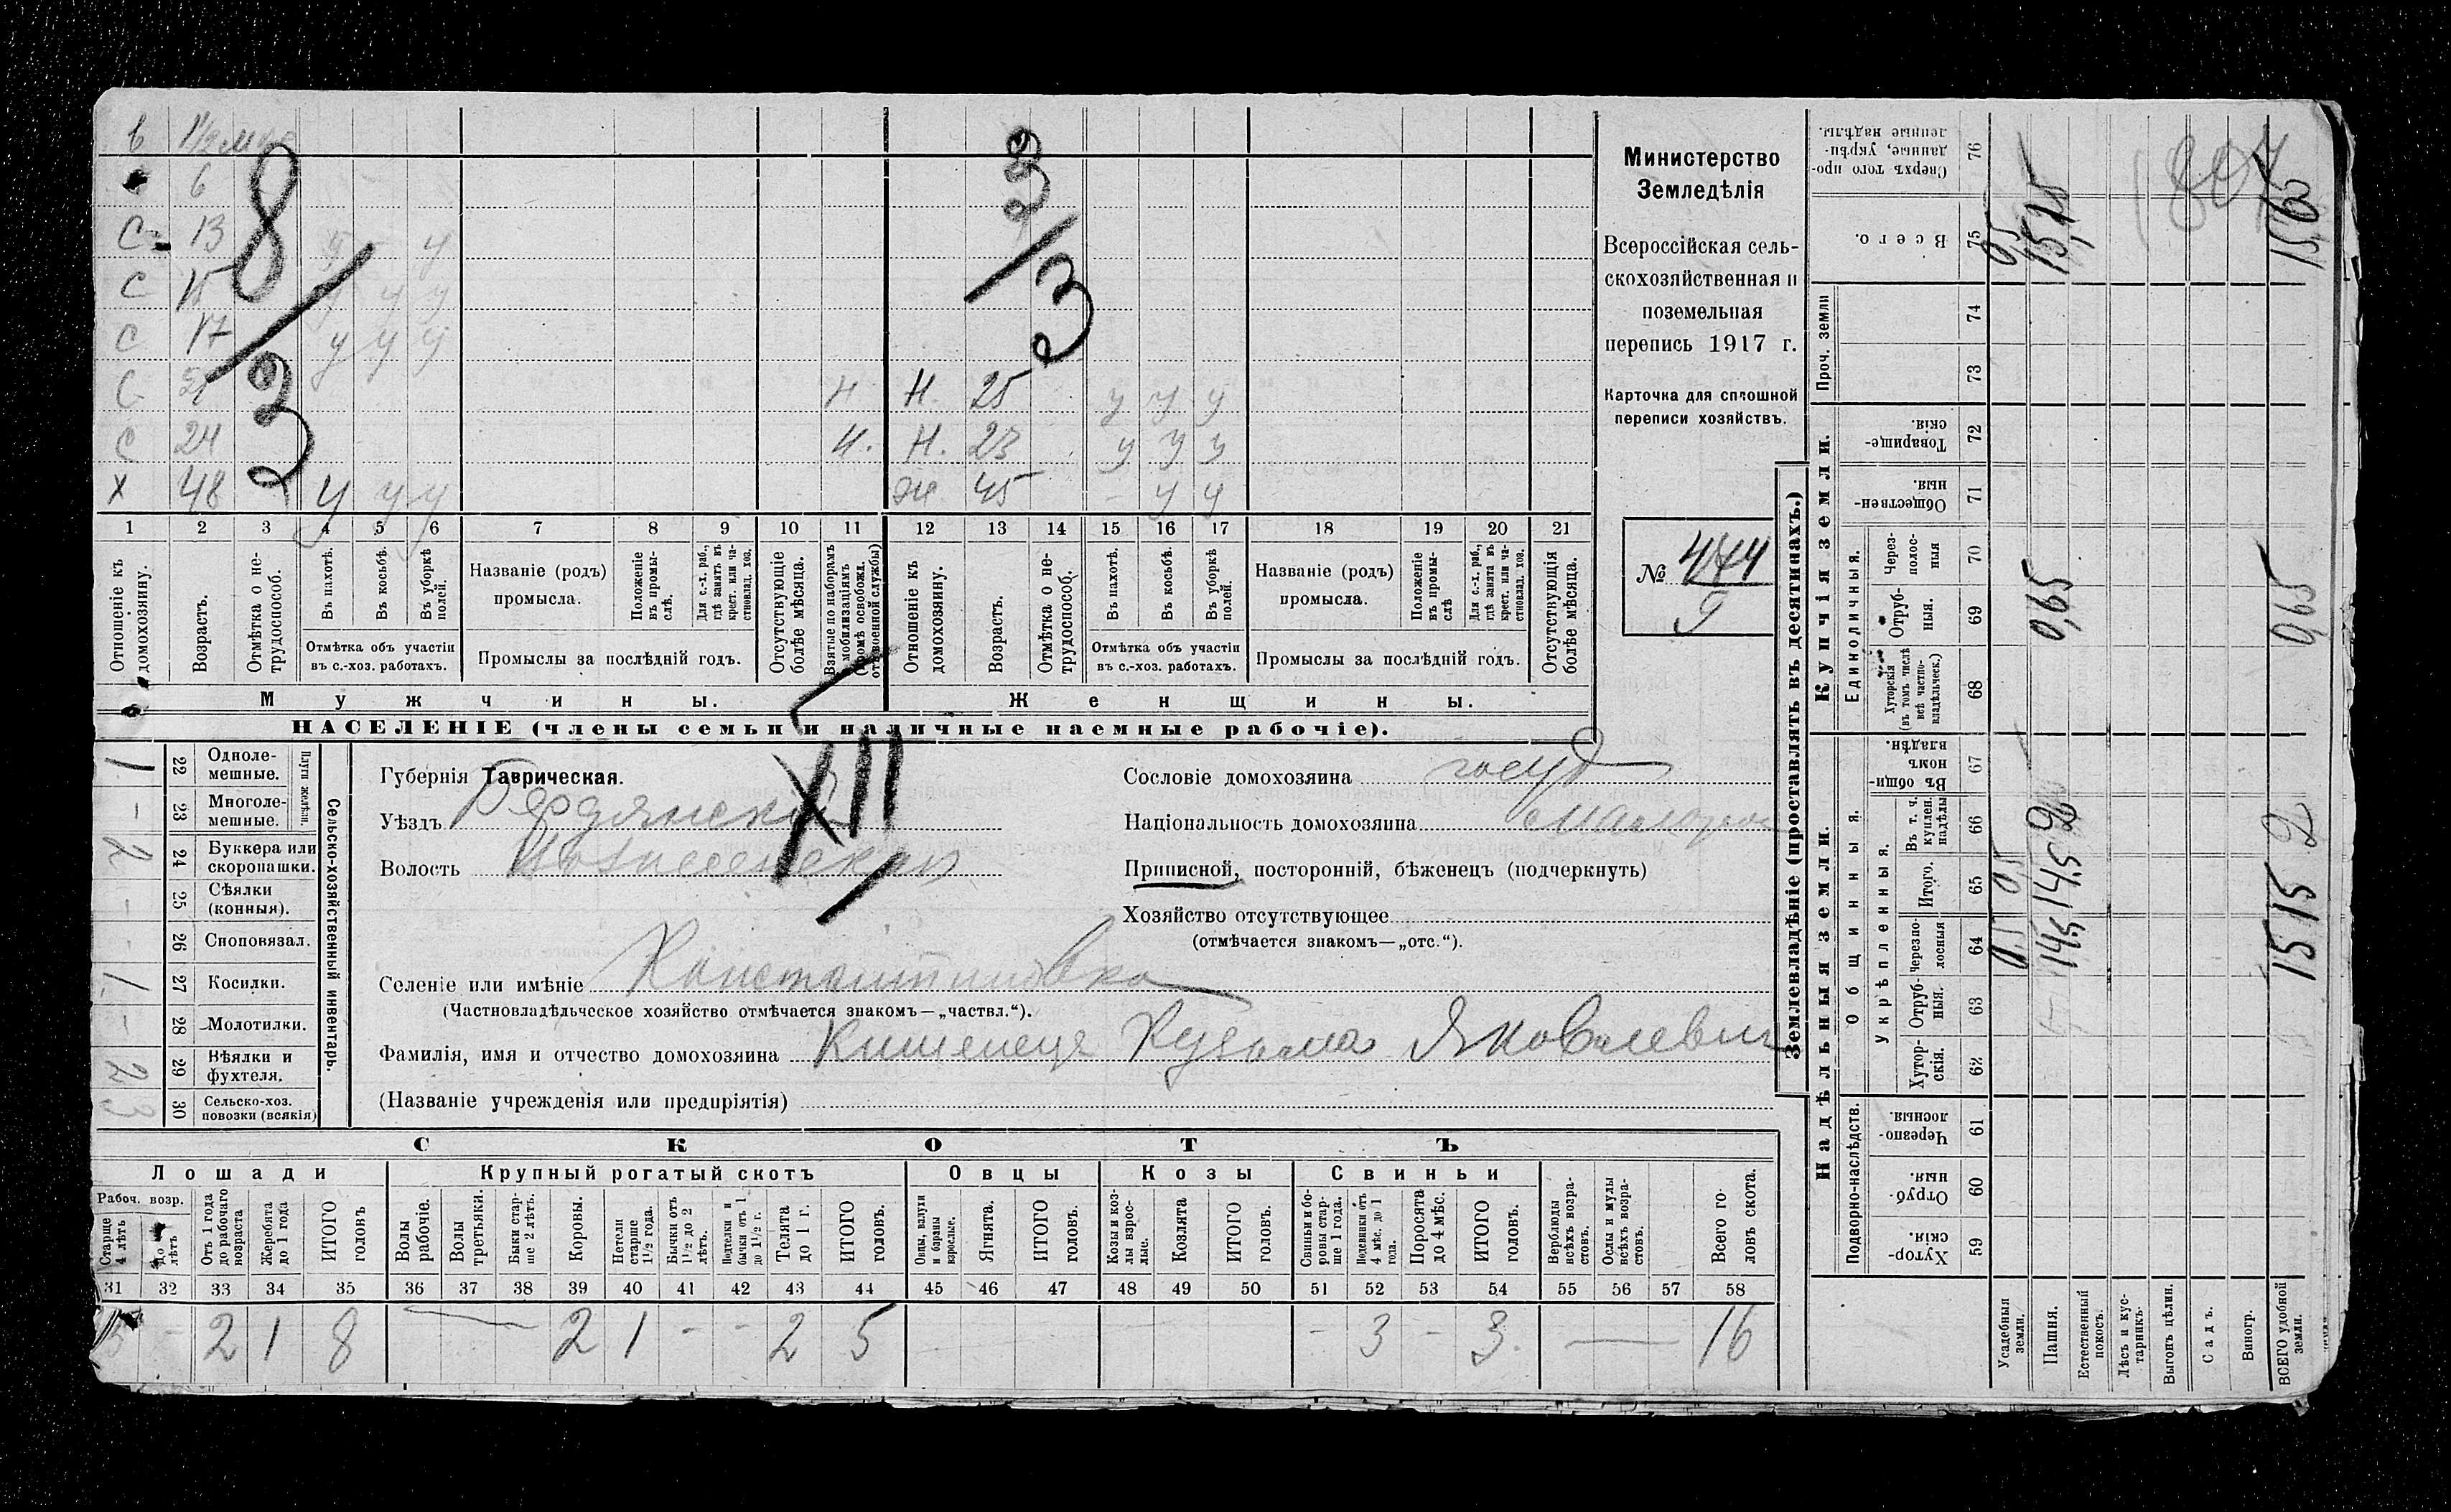 в 1½ мес
6
С 13 у у
С 15 у у у
С 17 у у у
С Н Н. 25 у у у
С 24 Н. Н. 23 у у у
Х 48 у у у Ж 45 - у у
8/3
3/3
1 2 3 4 5 6 7 8 9 10 11 12 13 14 15 16 17 18 19 20 21
Отношеніе къ домохозяину.
Возрастъ.
Отмѣтка о нетрудоспособ.
Въ пахотѣ.
Въ косьбѣ.
Въ уборкѣ полей.
Отмѣтка объ участіи въ с.-хоз. работахъ.
Названіе (родъ) промысла.
Положеніе въ промыслѣ.
Для с.-х. раб., гдѣ занятъ въ крест. или частновлад. хоз.
Промыслы за послѣдній годъ.
Отсутствующіе болѣе мѣсяца.
Взятые по наборамъ и мобилизаціямъ (кромѣ освобожд. отъ военной службы)
Отношеніе къ домохозяину.
Возрастъ.
Отмѣтка о нетрудоспособ.
Въ пахотѣ.
Въ косьбѣ.
Въ уборкѣ полей.
Отмѣтка объ участіи въ с.-хоз. работахъ.
Названіе (родъ) промысла.
Положеніе въ промыслѣ
Для с.-х. раб., гдѣ занята въ крест. или частновлад. хоз.
Промыслы за послѣдній годъ.
Отсутствующія болѣе мѣсяца.
Мужчины. Женщины.
НАСЕЛЕНІЕ (члены семьи и наличные наемные рабочіе).
Министерство
Земледѣлія
Всероссійская сель-
скохозяйственная и
поземельная
перепись 1917 г.
Карточка для сплошной
переписи хозяйствъ.
№
XII
Сельско-хозяйственный инвентарь.
Плуги желѣзн.
22 Однолемешные. 1
23 Многолемешные. -
24 Буккера или скоропашки. 2
25 Сѣялки (конныя). -
26 Сноповязал. -
27 Косилки. 1
28 Молотилки. -
29 Вѣялки и фухтеля. 2
30 Сельско-хоз. повозки (всякія) 3
Губернія Таврическая.
Уѣздъ Бердянскій
Волость
Сословіе домохозяина госуд
Національность домохозяина малорос
Приписной, посторонній, бѣженецъ (подчеркнуть)
Хозяйство отсутствующее
(отмѣчается знакомъ—„отс.“).
Селеніе или имѣніе Константиновка
(Частновладѣльческое хозяйство отмѣчается знакомъ—„частвл.“).
Фамилія, имя и отчество домохозяина Кишенець Кузьма Яковлевич
(Названіе учрежденія или предпріятія)
СКОТЪ
Лошади Крупный рогатый скотъ Овцы Козы Свиньи
Рабоч. возр.
Старше 4 лѣтъ
До 4 лѣтъ
Отъ 1 года до рабочаго возраста
Жеребята до 1 года
ИТОГО головъ
Волы рабочіе.
Волы третьяки.
Быки старше 2 лѣтъ.
Коровы.
Нетели старше 1½ года.
Бычки отъ 1½ до 2 лѣтъ.
Подтелки и бычки отъ 1 до 1½ г.
Телята до 1 г.
ИТОГО головъ.
Овцы, валухи и бараны взрослые.
Ягнята.
ИТОГО головъ.
Козы и козлы взрослые.
Козлята
ИТОГО головъ.
Свиньи и боровы старше 1 года.
Подсвинки отъ 4 мѣс. до 1 года.
Поросята до 4 мѣс.
ИТОГО головъ.
Верблюды всѣхъ возрастовъ.
Ослы и мулы всѣхъ возрастовъ.
Всего головъ скота.
31 32 33 34 35 36 37 38 39 40 41 42 43 44 45 46 47 48 49 50 51 52 53 54 55 56 57 58
5 - 2 1 8 — 2 1 - - 2 5 - 3 - 3. — 16
Землевладѣніе (проставлять въ десятинахъ.)
Надѣльныя земли. Купчія земли. Проч. земли
Подворно-наслѣдств. Общинныя. Единоличныя.
Укрѣпленныя.
Хуторскія. 59
Отрубныя. 60
Черезполосныя. 61
Хуторскія. 62
Отрубныя. 63
Черезполосныя 64
Итого. 65
Въ т. ч. куплен. надѣлы 66
Въ общинномъ владѣн. 67
Хуторскія (въ томъ числѣ всѣ частновладѣльческ.) 68
Отрубныя. 69
Черезполосныя 70
Общественныя. 71
Товарищескія. 72
73
74
Всего. 75
Сверхъ того проданные, укрѣпленные надѣлы. 76
Усадебныя земли. 0,5 0,5 0,5
Пашня. 14,5 14,5 2 0,65 15,15
Естественный покосъ.
Лѣсъ и кустарникъ.
Выгонъ цѣлин.
Садъ.
Виногр.
ВСЕГО удобной земли. 15 15 2 0,65 15,65
1807